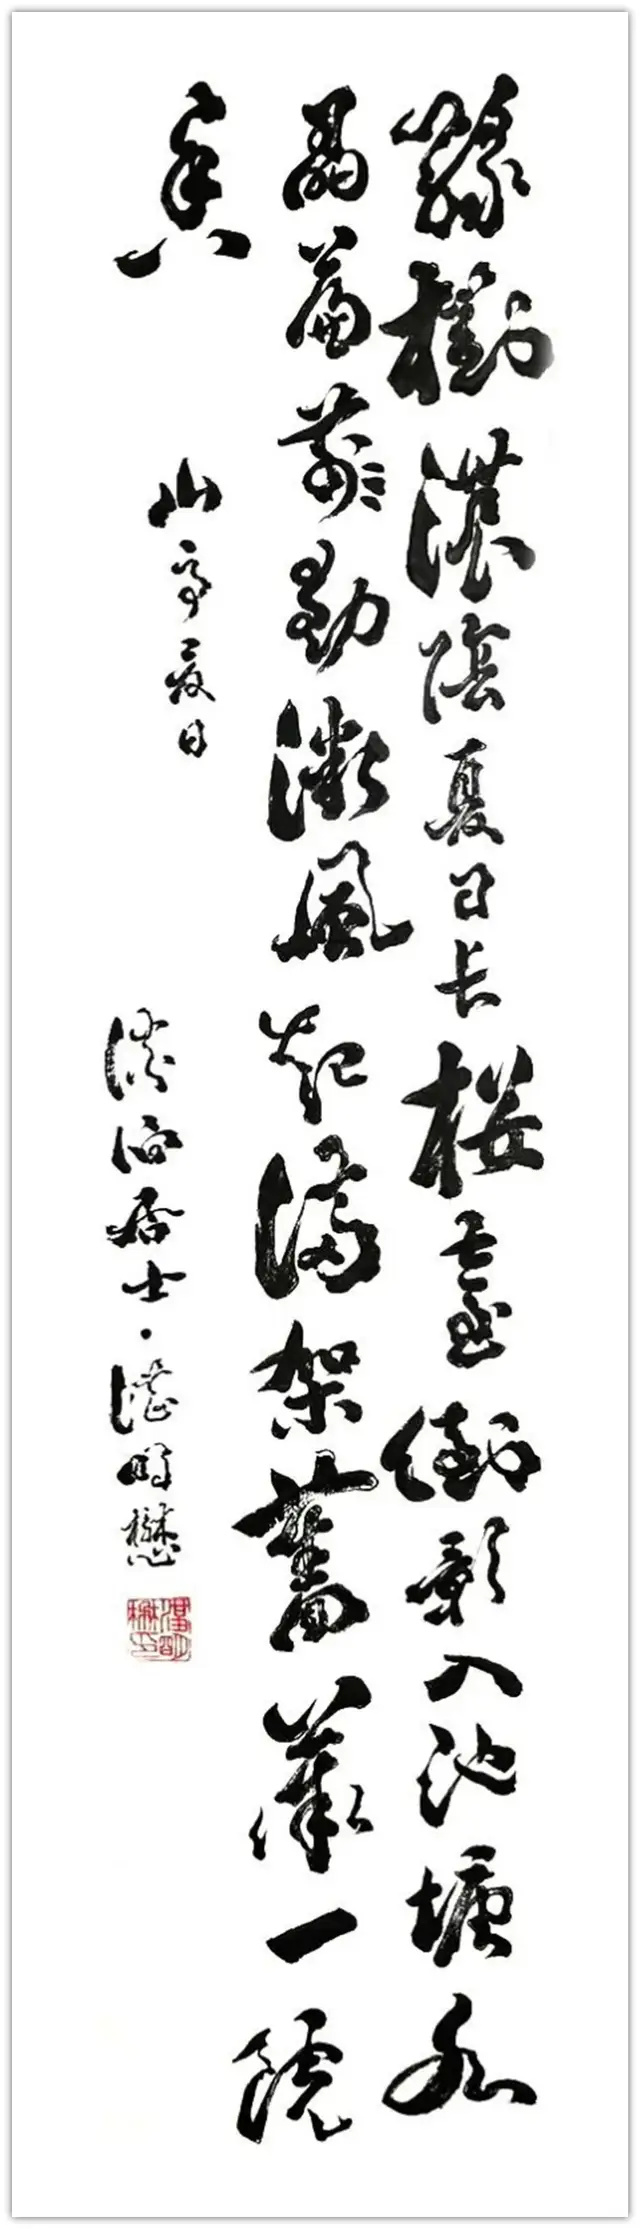 綠樹濃陰夏日長樓臺倒影入池塘水
晶簾動微風起滿架薔薇一院
香
山亭夏日
淡泊居士·